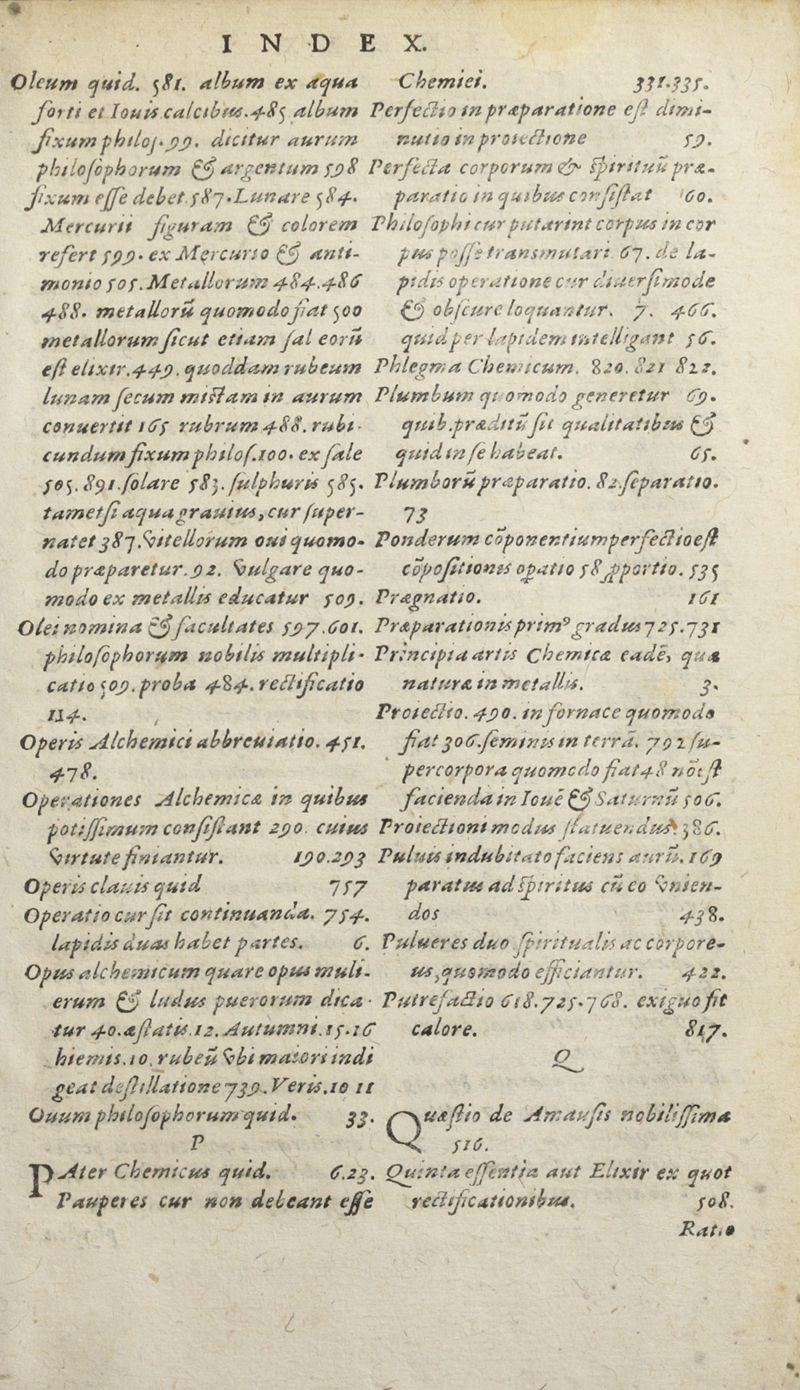 INDEX.
Oleum quid. 581. album ex aqua
forti et Iouis calcibus. 485 album
fixum philos. 99. dicitur aurum
philoſophorum & argentum 598
fixum eſſe debet. 587. Lunare 584.
Mercurii figuram & colorem
refert 599. ex Mercurio & anti-
monio 505. Metallorum 484. 486
488. metallorū quomodo fiat 500
metallorum ſicut etiam ſal eorū
eſt elixir. 449. quoddam rubeum
lunam ſecum miſtam in aurum
conuertit 165 rubrum 488. rubi-
cundum fixum philoſ. 100. ex ſale
505. 891. ſolare 583. ſulphuris 585.
tametſi aqua grauius, cur ſuper-
natet 387. vitellorum oui quomo-
do præparetur. 92. vulgare quo-
modo ex metallis educatur 509.
Olei nomina & facultates 597. 601.
philoſophorum nobilis multipli-
catio 509. proba 484. rectificatio
114.
Operis Alchemici abbreuiatio. 451.
478.
Operationes Alchemicæ in quibus
potiſſimum conſiſtant 290. cuius
virtute finiantur. 190. 293
Operis clauis quid 757
Operatio cur ſit continuanda. 754.
lapidis duas habet partes. 6.
Opus alchemicum quare opus muli-
erum & ludus puerorum dica-
tur 40. æſtatis. 12. Autumni. 15. 16
hiemis. 10. rubeū vbi maiori indi
geat deſtillatione 739. Veris. 10 11
Ouum philoſophorum quid. 33.
P
PAter Chemicus quid. 6. 23.
Pauperes cur non debeant eſſe
Chemici. 331. 335.
Perfectio in præparatione eſt dimi-
nutio in proiectione 59.
Perfecta corporum & ſpirituū præ-
paratio in quibus conſiſtat 60.
Philoſophi cur putarint corpus in cor
pus poſſe transmutari. 67. de la-
pidis operatione cur diuerſimode
& obſcure loquantur. 7. 466.
quid per lapidem intelligant 56.
Phlegma Chemicum. 820. 821 822.
Plumbum quomodo generetur 69.
quib. præditū ſit qualitatibus &
quid in ſe habeat. 65.
Plumborū præparatio. 82. ſeparatio.
73
Ponderum cōponentium perfectio eſt
cōpoſitionis oꝑatio 58 ꝓportio. 535
Prægnatio. 161
Præparationis prim⁹ gradus 725. 731
Principia artis Chemicæ eadē, quæ
naturæ in metallis. 3.
Proiectio. 490. in fornace quomodo
fiat 306. ſeminis in terrā. 792 ſu-
per corpora quomodo fiat 48 nō eſt
facienda in Iouē & Saturnū 506.
Proiectioni modus ſtatuendus. 386.
Puluis indubitato faciens aurū. 169
paratus ad ſpiritus cū eo vnien-
dos 438.
Pulueres duo ſpiritualis ac corpore-
us, quomodo efficiantur. 422.
Putrefactio 618. 725. 768. exiguo fit
calore. 817.
Q
Quæſtio de Amauſis nobiliſſima
516.
Quinta eſſentia aut Elixir ex quot
rectificationibus. 508.
Ratio